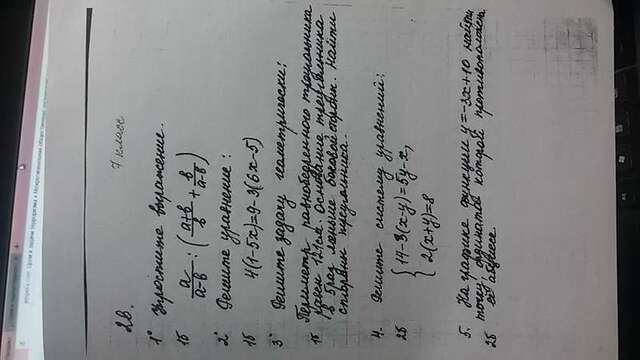 7 класс
2В.
1° Упростите выражение.
1б a/(a-b) : ((a+b)/b + b/(a-b))
2° Решите уравнение:
1б 4(1-5x)=9-3(6x-5)
3° Решите задачу геометрически:
Периметр равнобедренного треугольника
1б равен 121см. Основание треугольника
в 5раз меньше боковой стороны. Найти
стороны треугольника.
4. Решите систему уравнений:
2б {14-3(x-y)=5y-x,
2(x+y)=8
5. На графике функции y=-3x+10 найти
точку, ордината которой противоположна
2б её абсциссе.